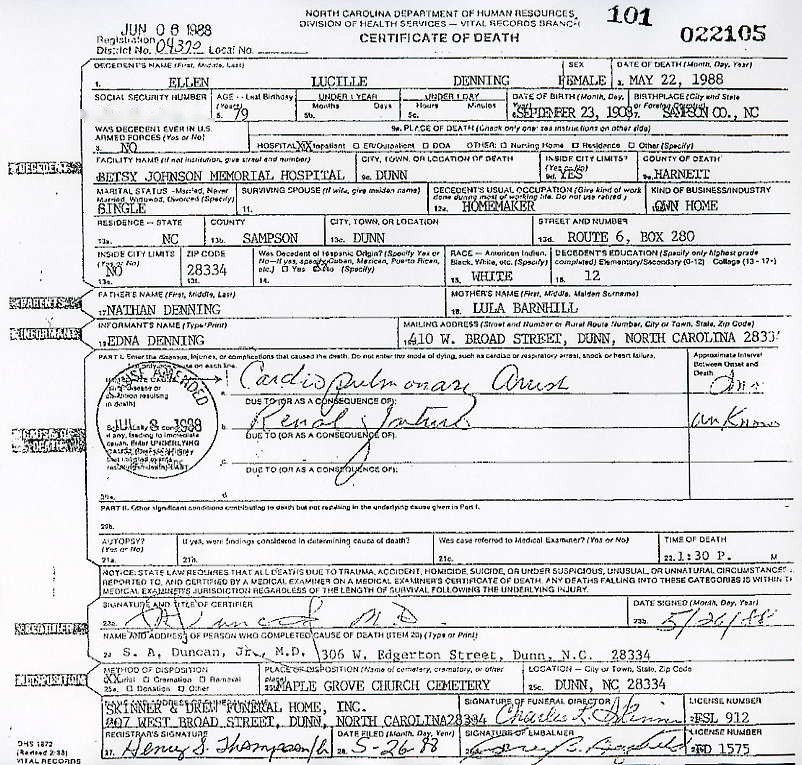 NORTH CAROLINA DEPARTMENT OF HUMAN RESOURCES
DIVISION OF HEALTH SERVICES — VITAL RECORDS BRANCH
CERTIFICATE OF DEATH
101
022105
JUN 08 1988
Registration
District No. 04372 Local No.
DECEDENT'S NAME (First, Middle, Last) SEX DATE OF DEATH (Month, Day, Year)
1. ELLEN LUCILLE DENNING FEMALE MAY 22, 1988
SOCIAL SECURITY NUMBER AGE--Last Birthday (Years) UNDER 1 YEAR Months Days UNDER 1 DAY Hours Minutes DATE OF BIRTH (Month, Day, BIRTHPLACE (City and State
79 5b. 5c. SEPTEMBER 23, 1908 7. SAMPSON CO., NC
WAS DECEDENT EVER IN U.S. ARMED FORCES? (Yes or No) 9a. PLACE OF DEATH (Check only one: see instructions on other side)
8. NO HOSPITAL: XX Inpatient ER/Outpatient DOA OTHER: Nursing Home Residence Other (Specify)
FACILITY NAME (If not institution, give street and number) CITY, TOWN, OR LOCATION OF DEATH INSIDE CITY LIMITS? (Yes or No) COUNTY OF DEATH
BETSY JOHNSON MEMORIAL HOSPITAL 9c. DUNN 9d. YES 9e. HARNETT
MARITAL STATUS -Married, Never Married, Widowed, Divorced (Specify) SURVIVING SPOUSE (If wife, give maiden name) DECEDENT'S USUAL OCCUPATION (Give kind of work done during most of working life. Do not use retired) KIND OF BUSINESS/INDUSTRY
SINGLE 11. 12a. HOMEMAKER OWN HOME
RESIDENCE - STATE COUNTY CITY, TOWN, OR LOCATION STREET AND NUMBER
13a. NC 13b. SAMPSON 13c. DUNN 13d. ROUTE 6, BOX 280
INSIDE CITY LIMITS (Yes or No) ZIP CODE Was Decedent of Hispanic Origin? (Specify Yes or No—If yes, specify Cuban, Mexican, Puerto Rican, etc.) Yes No (Specify) RACE - American Indian, Black, White, etc. (Specify) DECEDENT'S EDUCATION (Specify only highest grade completed) Elementary/Secondary (0-12) College (13-17+)
NO 28334 14. 15. WHITE 16. 12
FATHER'S NAME (First, Middle, Last) MOTHER'S NAME (First, Middle, Maiden Surname)
NATHAN DENNING 18. LULA BARNHILL
INFORMANT'S NAME (Type/Print) MAILING ADDRESS (Street and Number or Rural Route Number, City or Town, State, Zip Code)
EDNA DENNING 410 W. BROAD STREET, DUNN, NORTH CAROLINA 28334
PART I. Enter the diseases, injuries, or complications that caused the death. Do not enter the mode of dying, such as cardiac or respiratory arrest, shock or heart failure. Approximate Interval Between Onset and Death
Cardiopulmonary Arrest
DUE TO (OR AS A CONSEQUENCE OF):
b Renal failure unknown
DUE TO (OR AS A CONSEQUENCE OF):
c
DUE TO (OR AS A CONSEQUENCE OF):
d
AMENDED
JUL 8 1988
PART II. Other significant conditions contributing to death but not resulting in the underlying cause given in Part I.
20b.
AUTOPSY? (Yes or No) If yes, were findings considered in determining cause of death? Was case referred to Medical Examiner? (Yes or No) TIME OF DEATH
21a. 21b. 21c. 22. 1:30 P. M
NOTICE: STATE LAW REQUIRES THAT ALL DEATHS DUE TO TRAUMA, ACCIDENT, HOMICIDE, SUICIDE, OR UNDER SUSPICIOUS, UNUSUAL, OR UNNATURAL CIRCUMSTANCES
REPORTED TO, AND CERTIFIED BY A MEDICAL EXAMINER ON A MEDICAL EXAMINER'S CERTIFICATE OF DEATH. ANY DEATHS FALLING INTO THESE CATEGORIES IS WITHIN
MEDICAL EXAMINER'S JURISDICTION REGARDLESS OF THE LENGTH OF SURVIVAL FOLLOWING THE UNDERLYING INJURY.
SIGNATURE AND TITLE OF CERTIFIER DATE SIGNED (Month, Day, Year)
23a. Duncan M.D. 23b. 5/26/88
NAME AND ADDRESS OF PERSON WHO COMPLETED CAUSE OF DEATH (ITEM 20) (Type or Print)
24 S. A, Duncan, Jr., M.D. 306 W. Edgerton Street, Dunn, N.C. 28334
METHOD OF DISPOSITION PLACE OF DISPOSITION (Name of cemetery, crematory, or other place) LOCATION — City or Town, State, Zip Code
XX Burial Cremation Removal
25a. Donation Other MAPLE GROVE CHURCH CEMETERY 25c. DUNN, NC 28334
SKINNER & DREW FUNERAL HOME, INC. SIGNATURE OF FUNERAL DIRECTOR LICENSE NUMBER
207 WEST BROAD STREET, DUNN, NORTH CAROLINA 28334 FSL 912
REGISTRAR'S SIGNATURE DATE FILED (Month, Day, Year) SIGNATURE OF EMBALMER LICENSE NUMBER
27. Henry S. Thompson 28. 5-26-88 FD 1575
DHS 1872
(Revised 2/88)
VITAL RECORDS